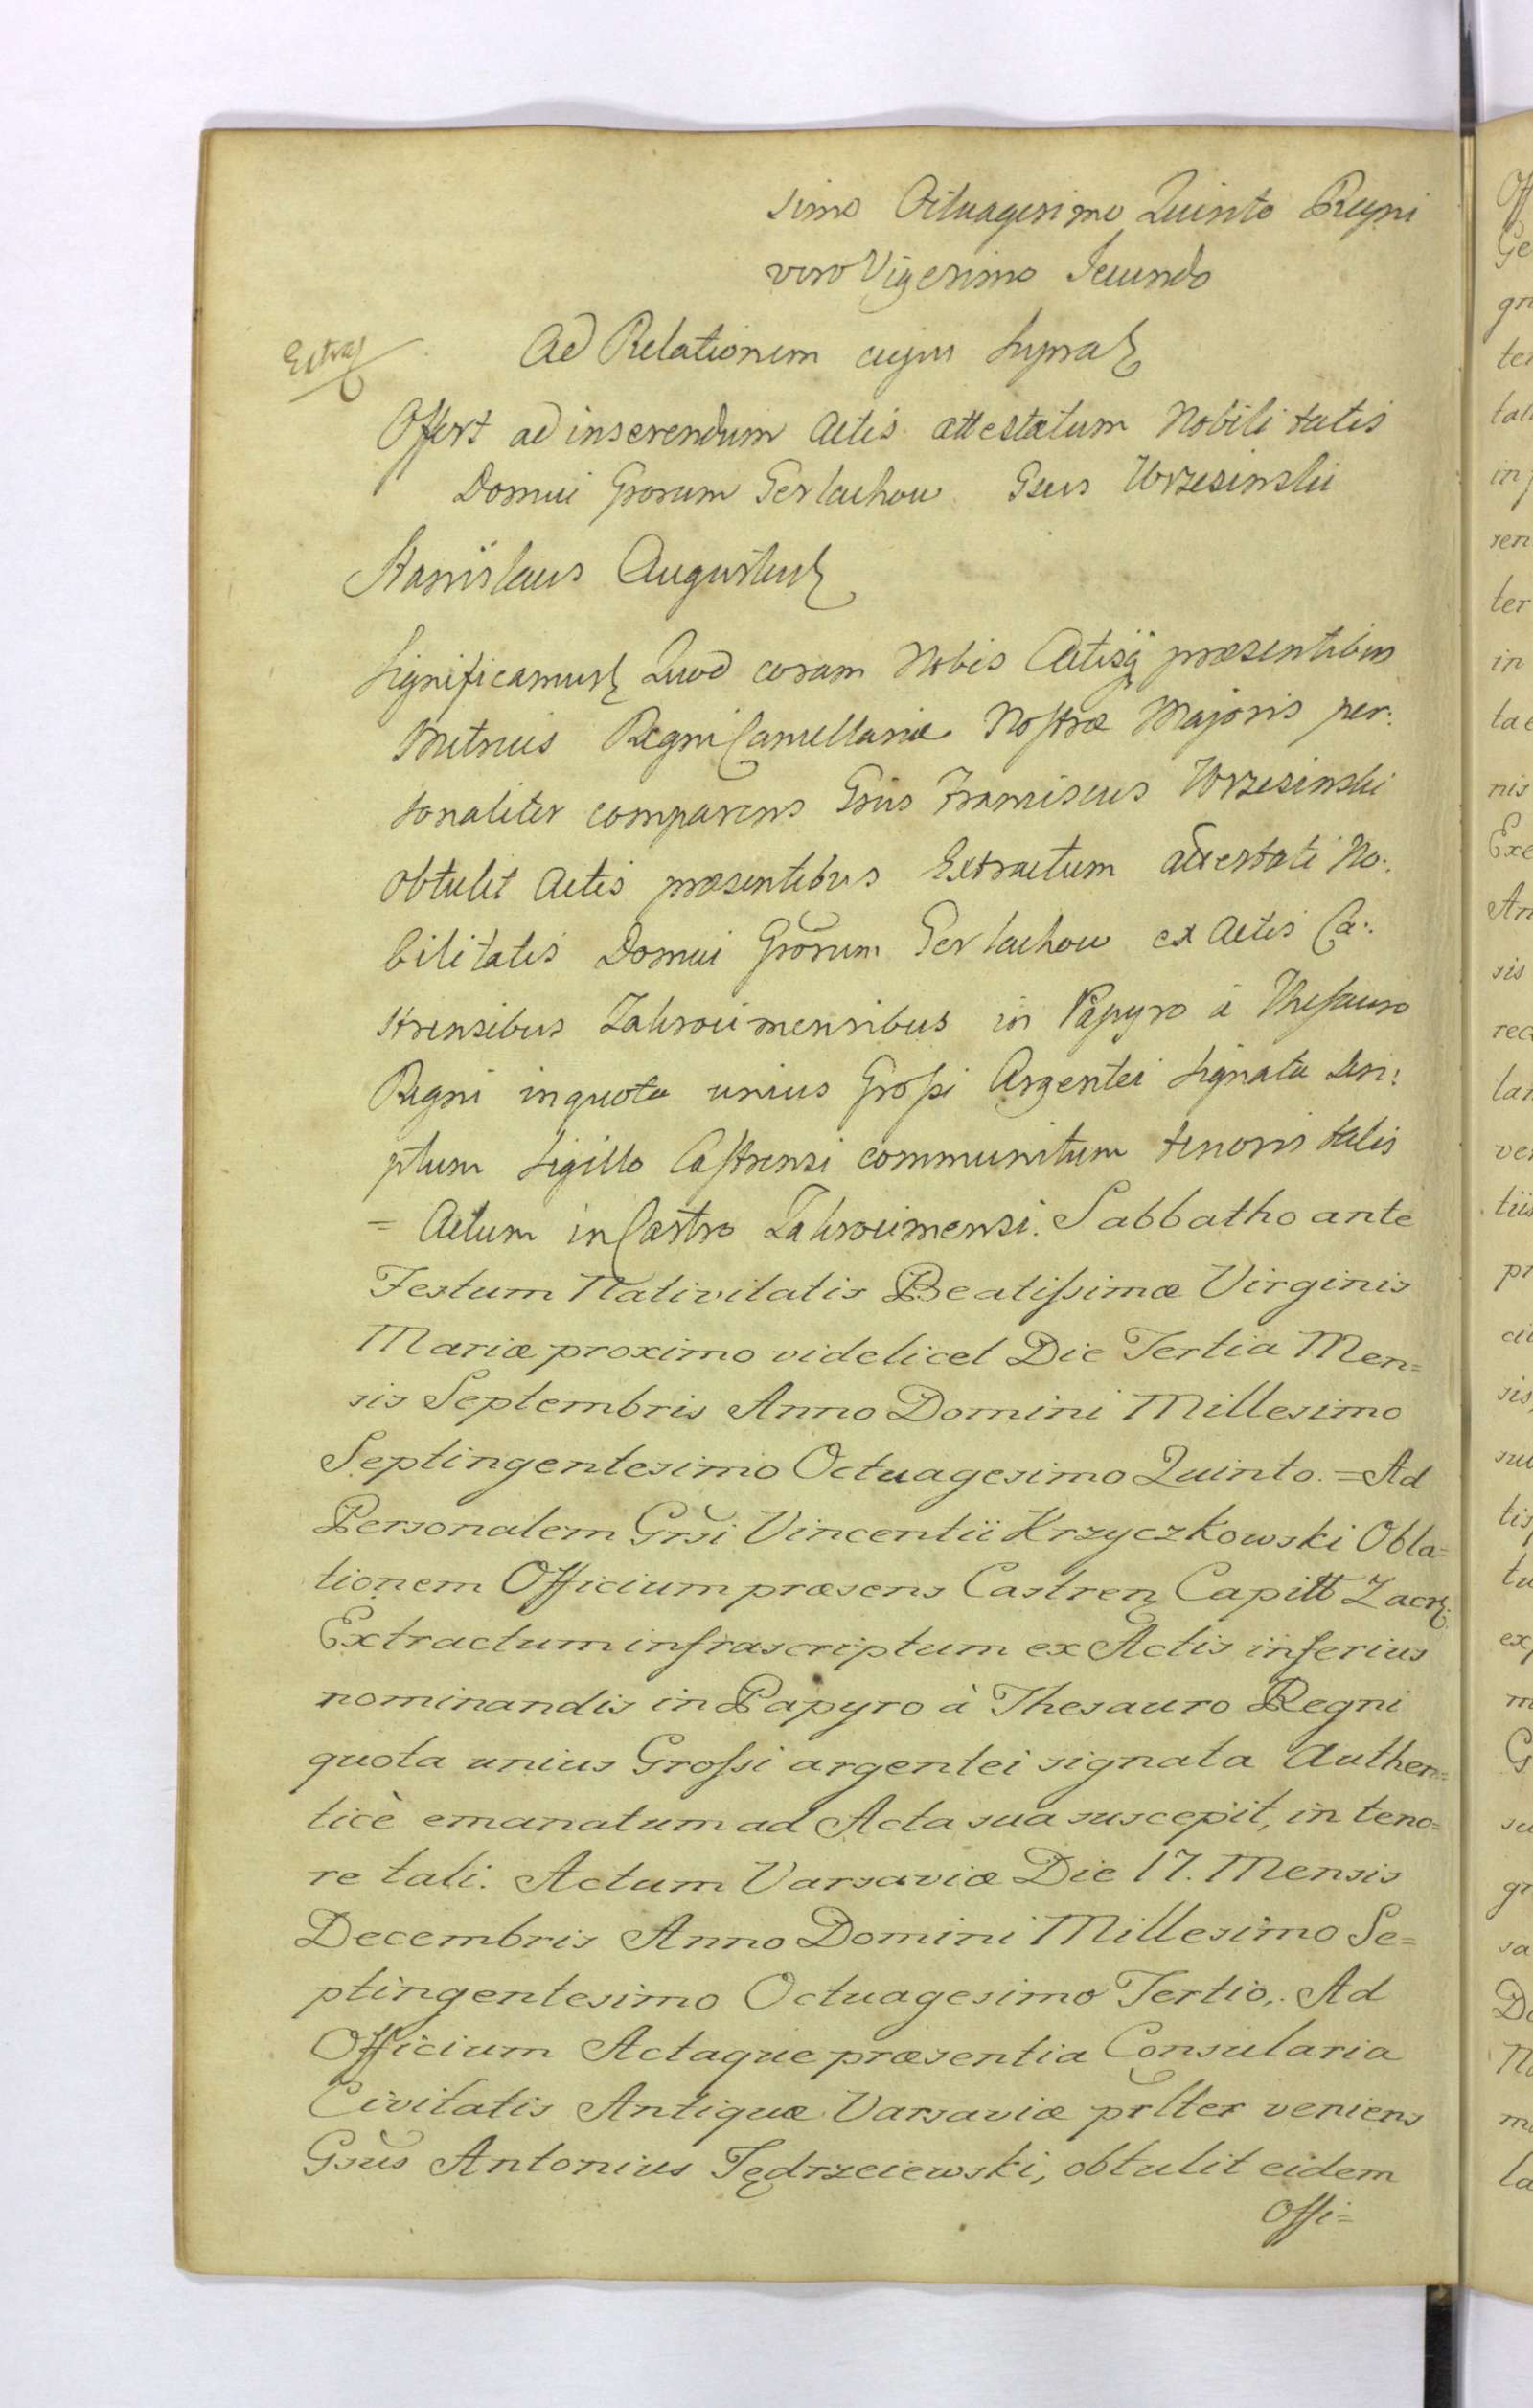 simo Octuagesimo Quinto Regni
vero Vigesimo Secundo
Extras
Ad Relationem cujus Supra
Offert ad inserendum Actis attestatum Nobilitatis
Domui Grorum Gerlachow Gsus Wrzesinski
Stanislaus Augustus
Significamus Quod coram Nobis Actisq præsentibus
Metrices Regni Cancellariæ Nostræ Majoris per:
sonaliter comparens Gsus Franciscus Wrzesinski
obtulit Actis præsentibus Extractum attestati No:
bilitatis Domui Grorum Gerlachow ex Actis Ca:
strensibus Zakrocimensibus in Papyro à Thesauro
Regni in quota unius Grossi Argentei Signata Scri:
ptum Sigillo Castrensi communitum tenoris talis
= Actum in Castro Zakrocimensi. Sabbatho ante
Festum Nativitatis Beatissimæ Virginis
Mariæ proximo videlicet Die Tertia Men=
sis Septembris Anno Domini Millesimo
Septingentesimo Octuagesimo Quinto. = Ad
Personalem Grsi Vincentii Krzyczkowski Obla=
tionem Officium præsens Castren Capitt Zacr:
Extractum infrascriptum ex Actis inferius
nominandis in Papyro à Thesauro Regni
quota unius Grossi argentei signata Authen=
ticè emanatum ad Acta sua suscepit, in teno=
re tali. Actum Varsaviæ Die 17. Mensis
Decembris Anno Domini Millesimo Se=
ptingentesimo Octuagesimo Tertio,. Ad
Officium Actaque præsentia Consularia
Civitatis Antiquæ Varsaviæ prlter veniens
Gsus Antonius Jędrzeiewski, obtulit eidem
Offi=